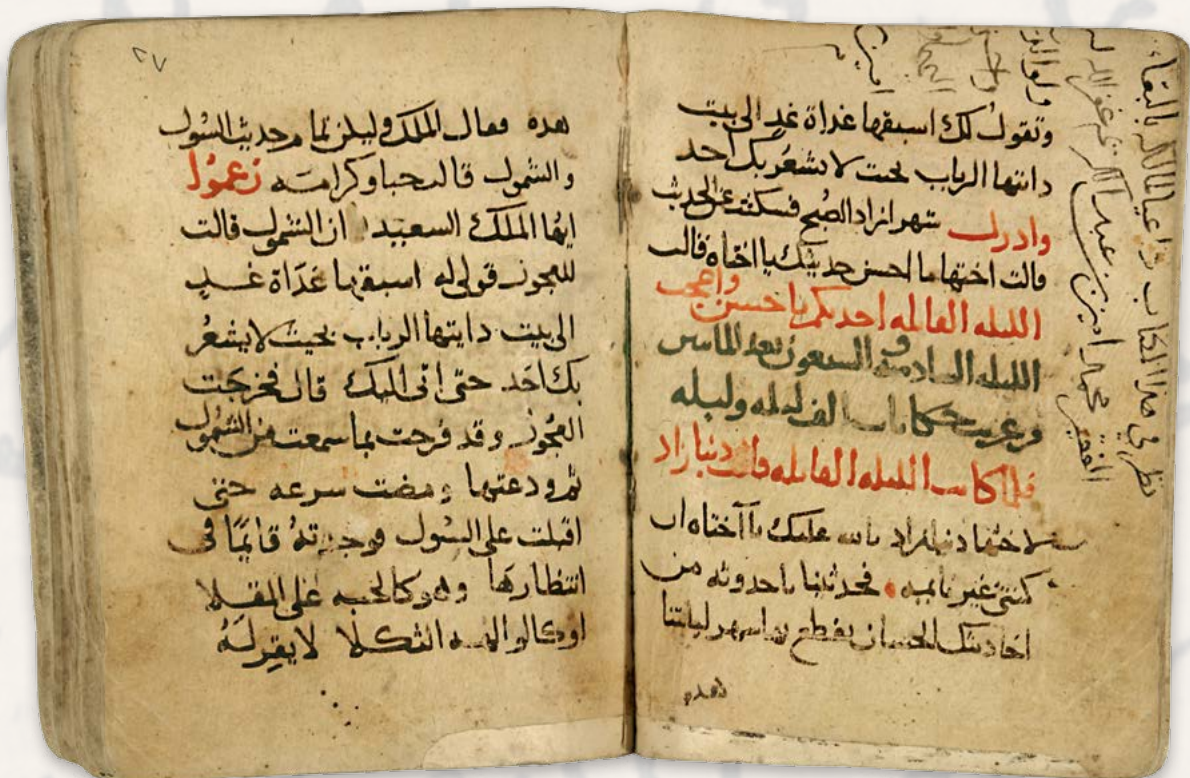 وتقول لك اسبقها غداة غدٍ الى بيت
دايتها الرباب بحيت لا يشعر بك احد
وادرك شهرازاد الصبح فسكتت عن الحديث
قالت اختها ما احسن حديثك يا اختاه قالت
الليله القابله احدثكم باحسن واعجب
الليله السادسه والسبعون بعد المايتين
من غريب حكايات الف ليله وليله
فلما كانت الليله القابله قالت دينارزاد
لاختها دينارزاد بالله عليك يا اختاه ان
كنتي غير نايمه فحدثينا باحدوثه من
احاديثك الحسان نقطع بها سهر ليلتنا
هده
نظر في هذا الكتاب داعيا لمالكه بالبقاء
الفقير محمد امين بن عبد
٢٧
هده فقال الملك وليكن تمام حديث السول
والشمول قالت حبا وكرامه زعموا
ايها الملك السعيد ان الشمول قالت
للعجوز قولي له اسبقها غداة غدٍ
الى بيت دايتها الرباب بحيت لا يشعر
بك احد حتى اتي اليك قال فخرجت
العجوز وقد فرحت بما سمعت من الشمول
ثم ودعتها ومضت سرعه حتى
اقبلت على السول فوجدته قايما في
انتظارها وهو كالحبه على المقلا
او كالوالده الثكلا لا يقر له